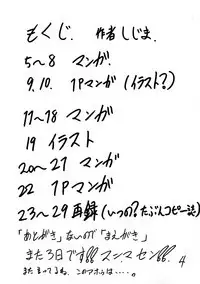 もくじ. 作者 しじま.
5〜8 マンガ.
9,10. 1Pマンガ(イラスト?)
11〜18 マンガ
19 イラスト
20〜21 マンガ
22 1Pマンガ
23〜29 再録(いつの?たぶんコピー誌)
「あとがき」ないので「まえがき」
また3日です!!! スンマセン!!!.
また言ってるね、このアホは……。
4